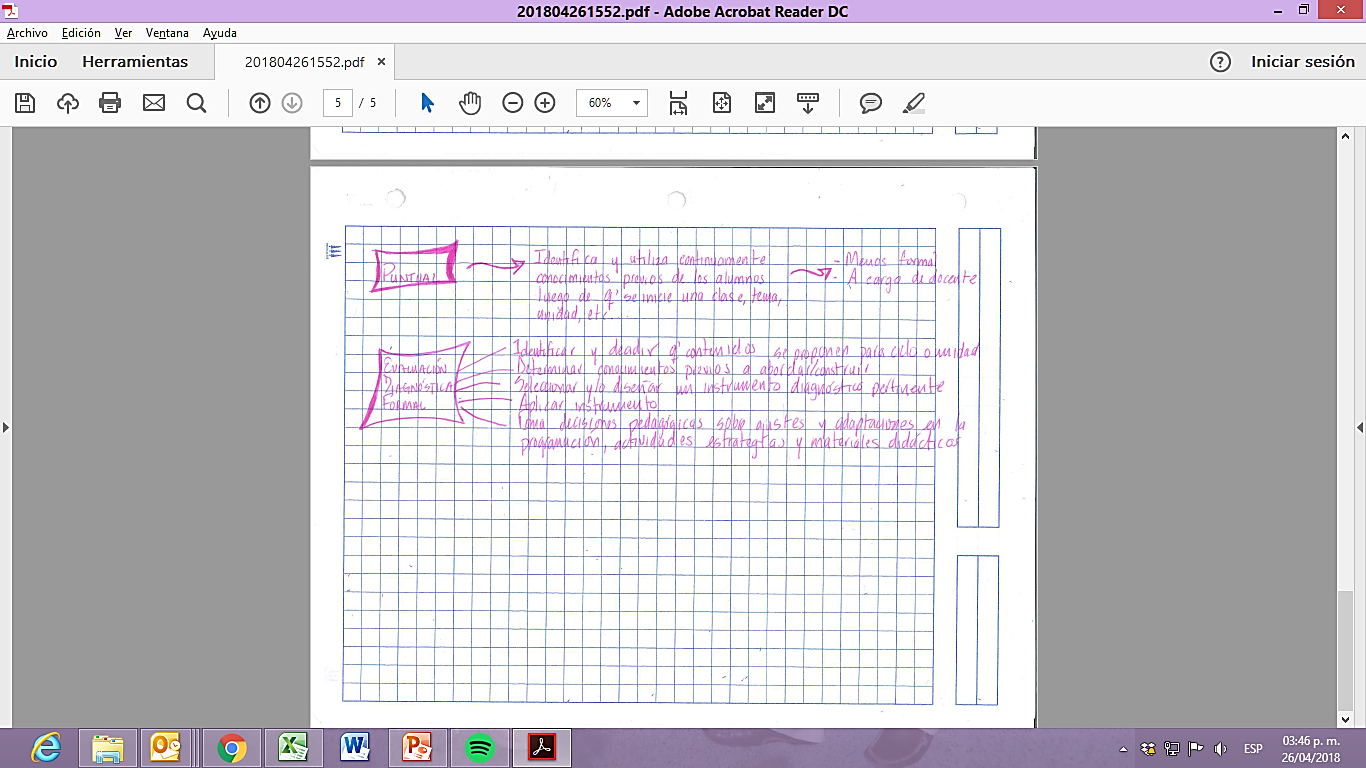 201804261552.pdf - Adobe Acrobat Reader DC
Archivo Edición Ver Ventana Ayuda
Inicio Herramientas 201804261552.pdf × Iniciar sesión
5 / 5 60%
PUNTUAL
Identifica y utiliza continuamente
conocimientos previos de los alumnos
luego de q' se inicie una clase, tema,
unidad, etc.
- Menos formal
- A cargo de docente
EVALUACIÓN
DIAGNÓSTICA
FORMAL
Identificar y decidir q' contenidos se proponen para ciclo o unidad
Determinar conocimientos previos a abordar/construir
Seleccionar y/o diseñar un instrumento diagnóstico pertinente
Aplicar instrumento
Toma decisiones pedagógicas sobre ajustes y adaptaciones en la
programación, actividades estrategias y materiales didácticos
ESP
03:46 p. m.
26/04/2018